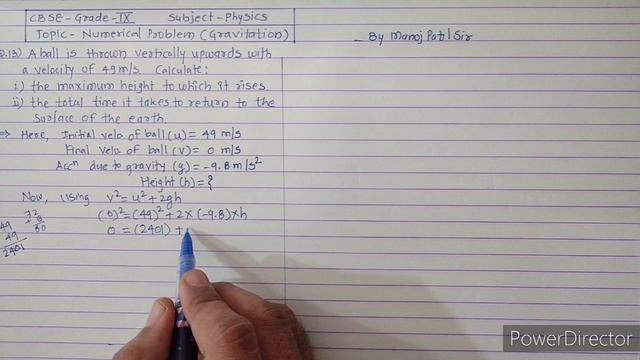 CBSE-Grade-IX Subject-Physics
Topic- Numerical Problem (Gravitation)
- By Manoj Patil Sir
Q.13) A ball is thrown vertically upwards with
a velocity of 49 m/s. Calculate:
i) the maximum height to which it rises.
ii) the total time it takes to return to the
surface of the earth.
⇒ Here, Initial velo of ball (u) = 49 m/s
Final velo of ball (v) = 0 m/s
Accⁿ due to gravity (g) = -9.8 m/s²
Height (h) = ?
Now, Using v² = u² + 2gh
(0)² = (49)² + 2×(-9.8)×h
0 = (2401) +
72
+ 8
80
49
49
2401
PowerDirector